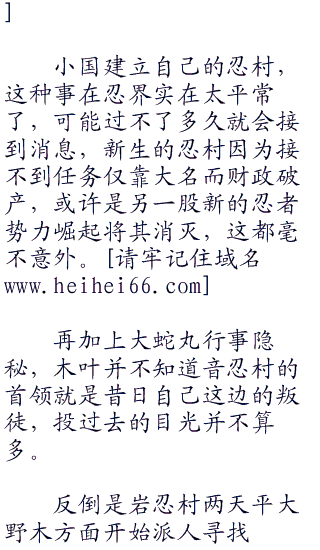 ]
小国建立自己的忍村，
这种事在忍界实在太平常
了，可能过不了多久就会接
到消息，新生的忍村因为接
不到任务仅靠大名而财政破
产，或许是另一股新的忍者
势力崛起将其消灭，这都毫
不意外。[请牢记住域名
www.heihei66.com]
再加上大蛇丸行事隐
秘，木叶并不知道音忍村的
首领就是昔日自己这边的叛
徒，投过去的目光并不算
多。
反倒是岩忍村两天平大
野木方面开始派人寻找